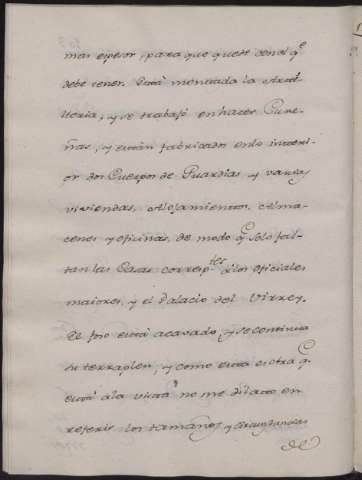 mas espesor, para que quede con el qe.
debe tener. Está montada la Arti-
lleria, y se trabajó en hacer Cure-
ñas, y están fabricados en lo interi-
or dos Cuerpos de Guardias y varias
viviendas, Alojamientos, Alma-
cenes y oficinas, de modo q solo fal-
tan las Casas corresptes. a los oficiales
maiores, y el Palacio del Virrey.
El foso está acavado, y se continua
su terraplen, y como esta es otra q
está a la vista no me dilato en
referir los tamaños y circunstancias
de